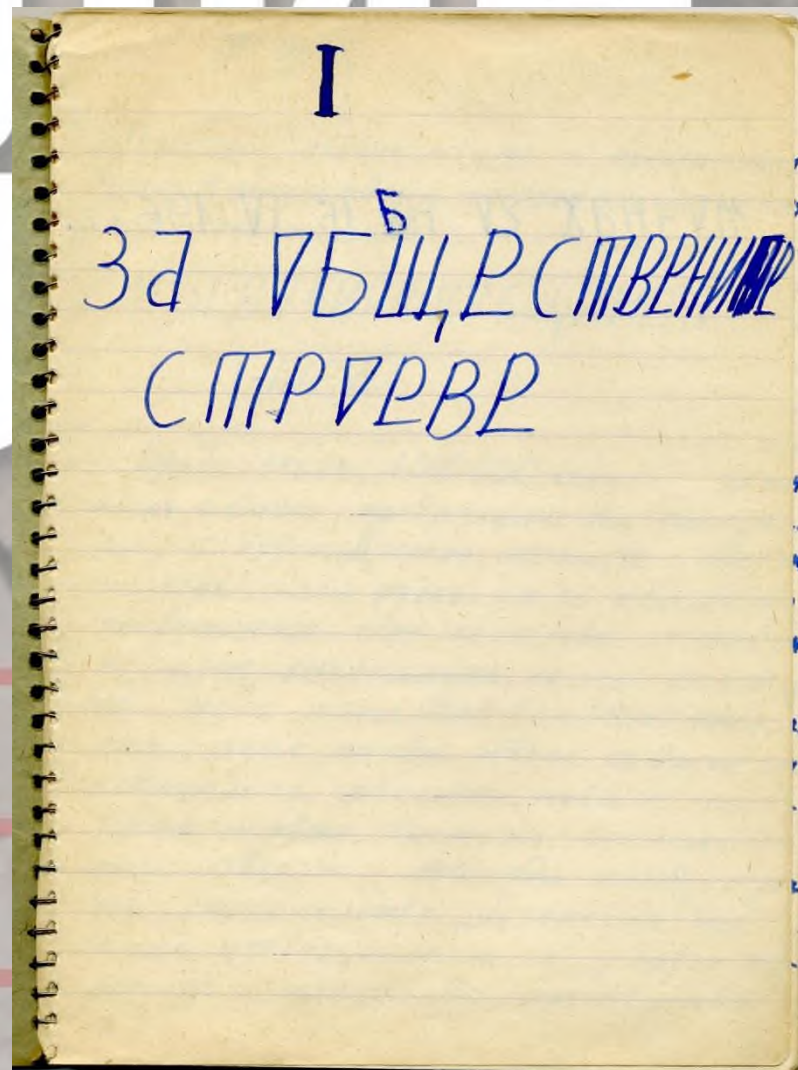 I
Б
За ОБЩЕСТВЕНИТЕ
СТРОЕВЕ